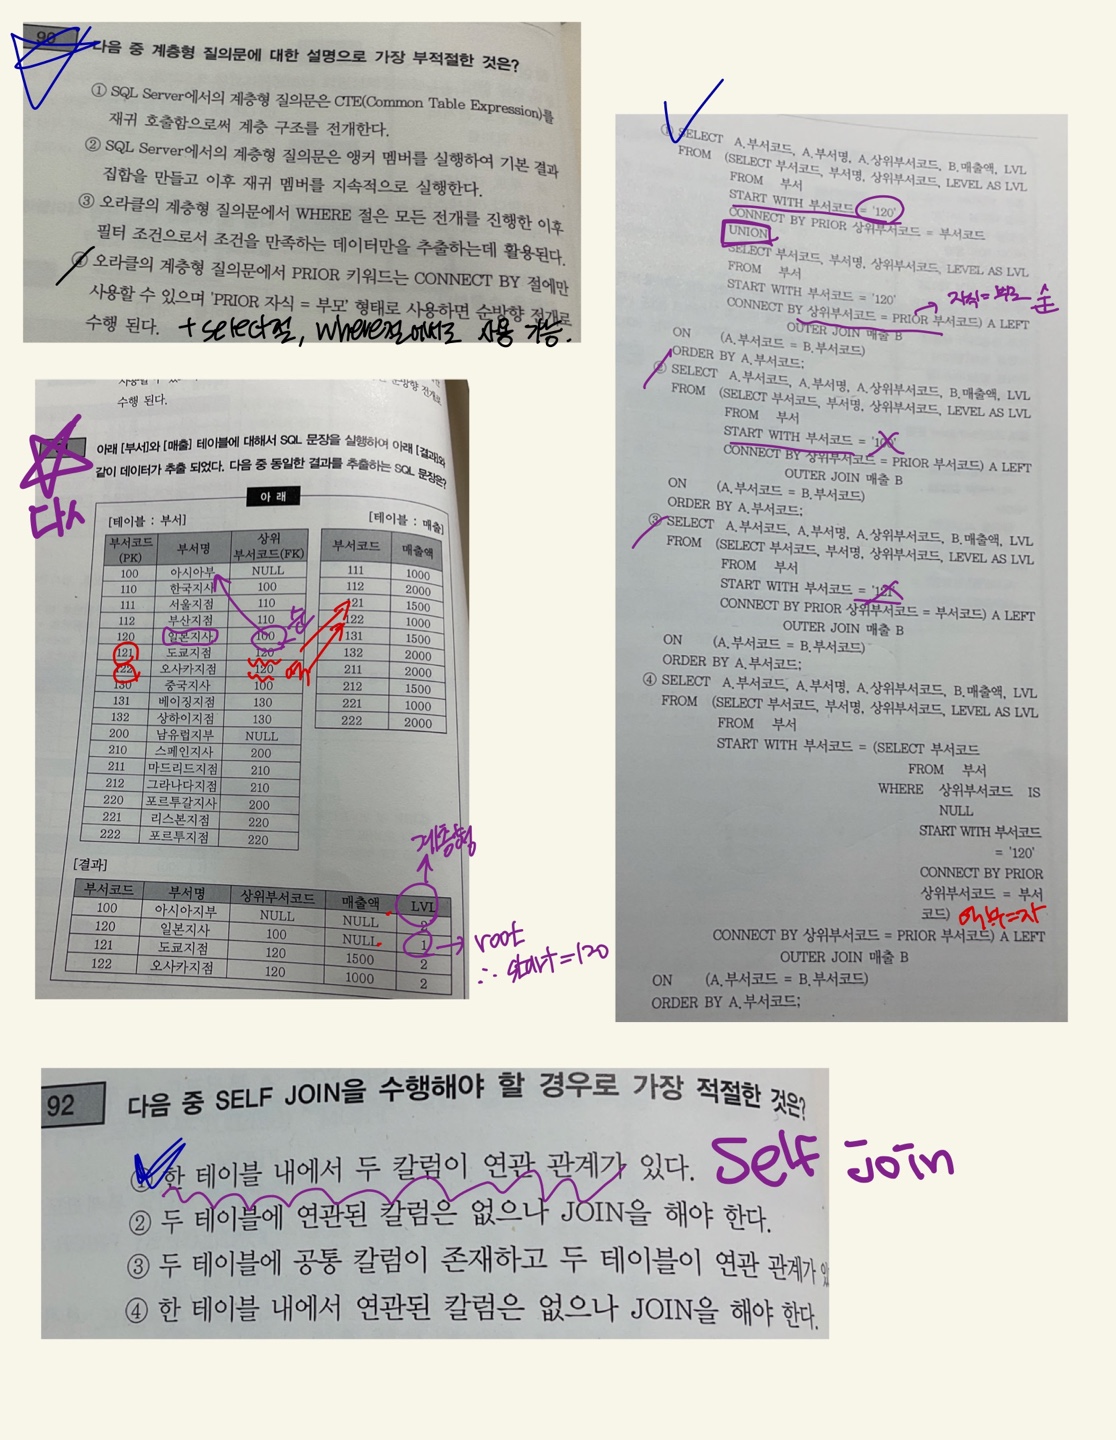 90
다음 중 계층형 질의문에 대한 설명으로 가장 부적절한 것은?
① SQL Server에서의 계층형 질의문은 CTE(Common Table Expression)를
재귀 호출함으로써 계층 구조를 전개한다.
② SQL Server에서의 계층형 질의문은 앵커 멤버를 실행하여 기본 결과
집합을 만들고 이후 재귀 멤버를 지속적으로 실행한다.
③ 오라클의 계층형 질의문에서 WHERE 절은 모든 전개를 진행한 이후
필터 조건으로서 조건을 만족하는 데이터만을 추출하는데 활용된다.
④ 오라클의 계층형 질의문에서 PRIOR 키워드는 CONNECT BY 절에만
사용할 수 있으며 'PRIOR 자식 = 부모' 형태로 사용하면 순방향 전개로
수행 된다. + select절, where절에서도 사용 가능.
수행 된다.
다시
아래 [부서]와 [매출] 테이블에 대해서 SQL 문장을 실행하여 아래 [결과]와
같이 데이터가 추출 되었다. 다음 중 동일한 결과를 추출하는 SQL 문장은?
아 래
[테이블 : 부서] [테이블 : 매출]
부서코드(PK) 부서명 상위부서코드(FK)
100 아시아부 NULL
110 한국지사 100
111 서울지점 110
112 부산지점 110
120 일본지사 100 순
121 도쿄지점 120
122 오사카지점 120 역
130 중국지사 100
131 베이징지점 130
132 상하이지점 130
200 남유럽지부 NULL
210 스페인지사 200
211 마드리드지점 210
212 그라나다지점 210
220 포르투갈지사 200
221 리스본지점 220
222 포르투지점 220
부서코드 매출액
111 1000
112 2000
121 1500
122 1000
131 1500
132 2000
211 2000
212 1500
221 1000
222 2000
계층형
[결과]
부서코드 부서명 상위부서코드 매출액 LVL
100 아시아지부 NULL NULL 2
120 일본지사 100 NULL 1
121 도쿄지점 120 1500 2
122 오사카지점 120 1000 2
→ root
∴ start=120
① SELECT A.부서코드, A.부서명, A.상위부서코드, B.매출액, LVL
FROM (SELECT 부서코드, 부서명, 상위부서코드, LEVEL AS LVL
FROM 부서
START WITH 부서코드 = '120'
CONNECT BY PRIOR 상위부서코드 = 부서코드
UNION
SELECT 부서코드, 부서명, 상위부서코드, LEVEL AS LVL
FROM 부서
START WITH 부서코드 = '120'
→ 자식=부모 순
CONNECT BY 상위부서코드 = PRIOR 부서코드) A LEFT
OUTER JOIN 매출 B
ON (A.부서코드 = B.부서코드)
ORDER BY A.부서코드;
② SELECT A.부서코드, A.부서명, A.상위부서코드, B.매출액, LVL
FROM (SELECT 부서코드, 부서명, 상위부서코드, LEVEL AS LVL
FROM 부서
START WITH 부서코드 = '100'
CONNECT BY 상위부서코드 = PRIOR 부서코드) A LEFT
OUTER JOIN 매출 B
ON (A.부서코드 = B.부서코드)
ORDER BY A.부서코드;
③ SELECT A.부서코드, A.부서명, A.상위부서코드, B.매출액, LVL
FROM (SELECT 부서코드, 부서명, 상위부서코드, LEVEL AS LVL
FROM 부서
START WITH 부서코드 = '121'
CONNECT BY PRIOR 상위부서코드 = 부서코드) A LEFT
OUTER JOIN 매출 B
ON (A.부서코드 = B.부서코드)
ORDER BY A.부서코드;
④ SELECT A.부서코드, A.부서명, A.상위부서코드, B.매출액, LVL
FROM (SELECT 부서코드, 부서명, 상위부서코드, LEVEL AS LVL
FROM 부서
START WITH 부서코드 = (SELECT 부서코드
FROM 부서
WHERE 상위부서코드 IS
NULL
START WITH 부서코드
= '120'
CONNECT BY PRIOR
상위부서코드 = 부서
코드) 역 부=자
CONNECT BY 상위부서코드 = PRIOR 부서코드) A LEFT
OUTER JOIN 매출 B
ON (A.부서코드 = B.부서코드)
ORDER BY A.부서코드;
92
다음 중 SELF JOIN을 수행해야 할 경우로 가장 적절한 것은?
① 한 테이블 내에서 두 칼럼이 연관 관계가 있다. Self join
② 두 테이블에 연관된 칼럼은 없으나 JOIN을 해야 한다.
③ 두 테이블에 공통 칼럼이 존재하고 두 테이블이 연관 관계가
④ 한 테이블 내에서 연관된 칼럼은 없으나 JOIN을 해야 한다.